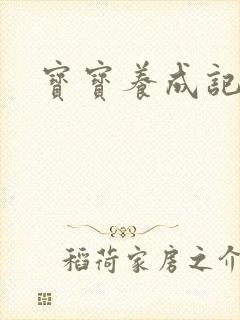 寶寶養成記
稻荷家房之介